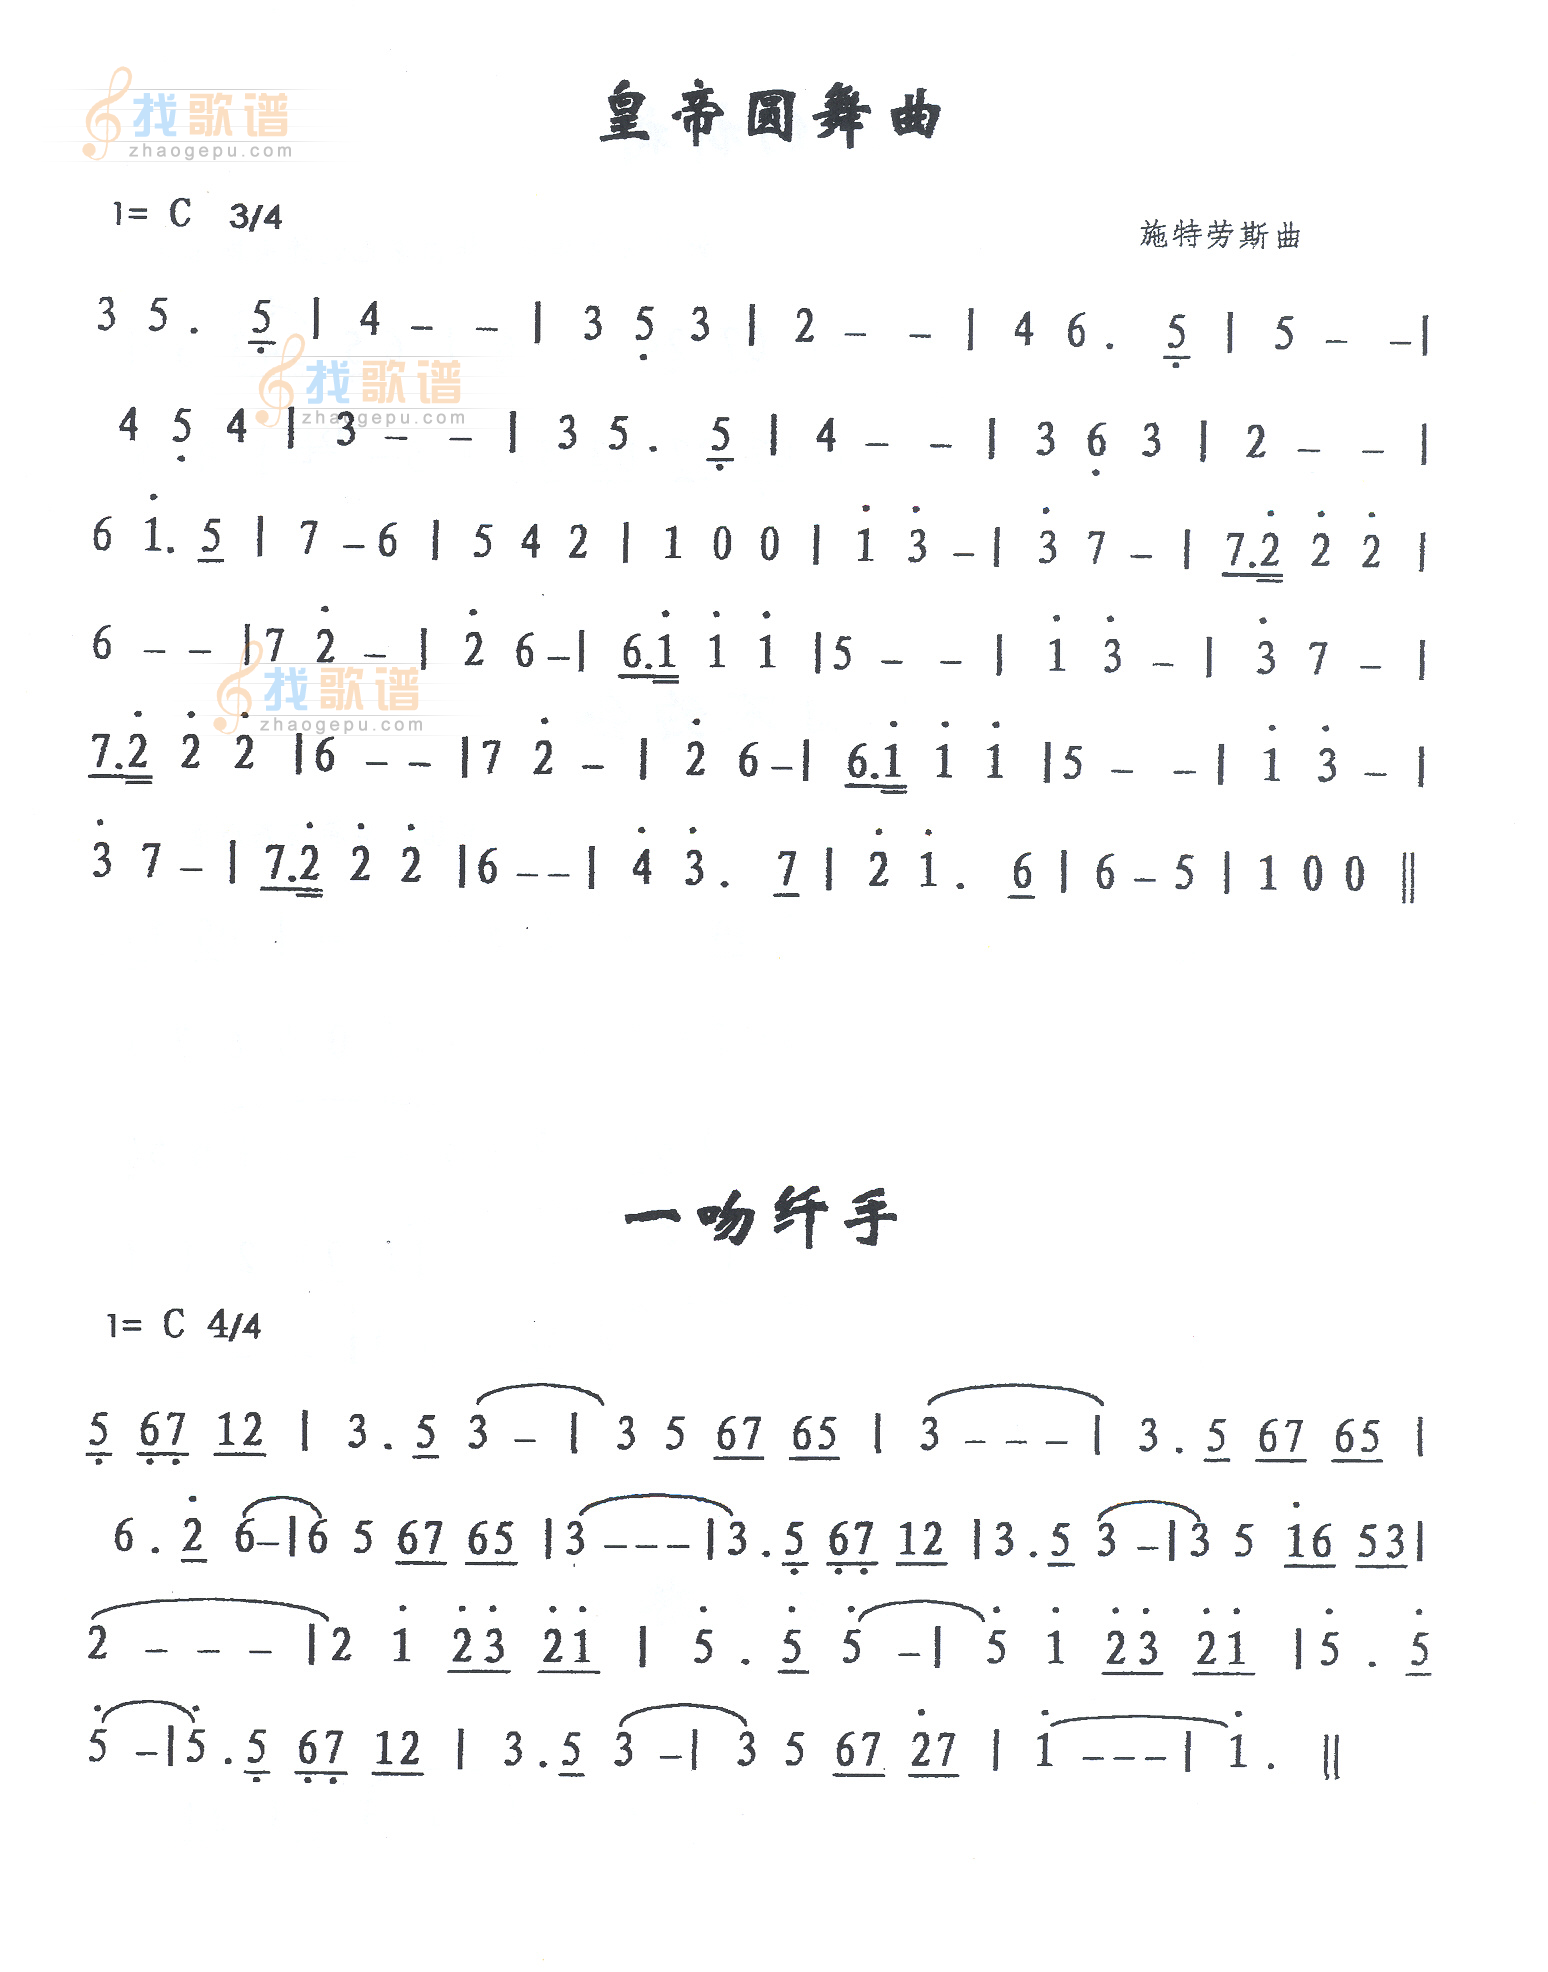 找歌谱
zhaogepu.com
皇帝圆舞曲
1= C 3/4
施特劳斯曲
3 5 . 5̣ | 4 - - | 3 5̣ 3 | 2 - - | 4 6 . 5̣ | 5 - - |
找歌谱
zhaogepu.com
4 5̣ 4 | 3 - - | 3 5 . 5̣ | 4 - - | 3 6̣ 3 | 2 - - |
6 1̇. 5 | 7 - 6 | 5 4 2 | 1 0 0 | 1̇ 3̇ - | 3̇ 7 - | 7.2̇ 2̇ 2̇ |
6 - - | 7 2̇ - | 2̇ 6 - | 6.1̇ 1̇ 1̇ | 5 - - | 1̇ 3̇ - | 3̇ 7 - |
找歌谱
zhaogepu.com
7.2̇ 2̇ 2̇ | 6 - - | 7 2̇ - | 2̇ 6 - | 6.1̇ 1̇ 1̇ | 5 - - | 1̇ 3̇ - |
3̇ 7 - | 7.2̇ 2̇ 2̇ | 6 - - | 4̇ 3̇ . 7 | 2̇ 1̇ . 6 | 6 - 5 | 1 0 0 ‖
一吻纤手
1= C 4/4
5̣ 6̣7̣ 12 | 3 . 5 3 - | 3 5 67 65 | 3 - - - | 3 . 5 67 65 |
6 . 2̇ 6 - | 6 5 67 65 | 3 - - - | 3 . 5̣ 6̣7̣ 12 | 3 . 5 3 - | 3 5 1̇6 53 |
2 - - - | 2 1̇ 2̇3̇ 2̇1̇ | 5̇ . 5̇ 5̇ - | 5̇ 1̇ 2̇3̇ 2̇1̇ | 5̇ . 5̇
5̇ - | 5̇ . 5̣ 6̣7̣ 12 | 3 . 5 3 - | 3 5 67 2̇7 | 1̇ - - - | 1̇ . ‖